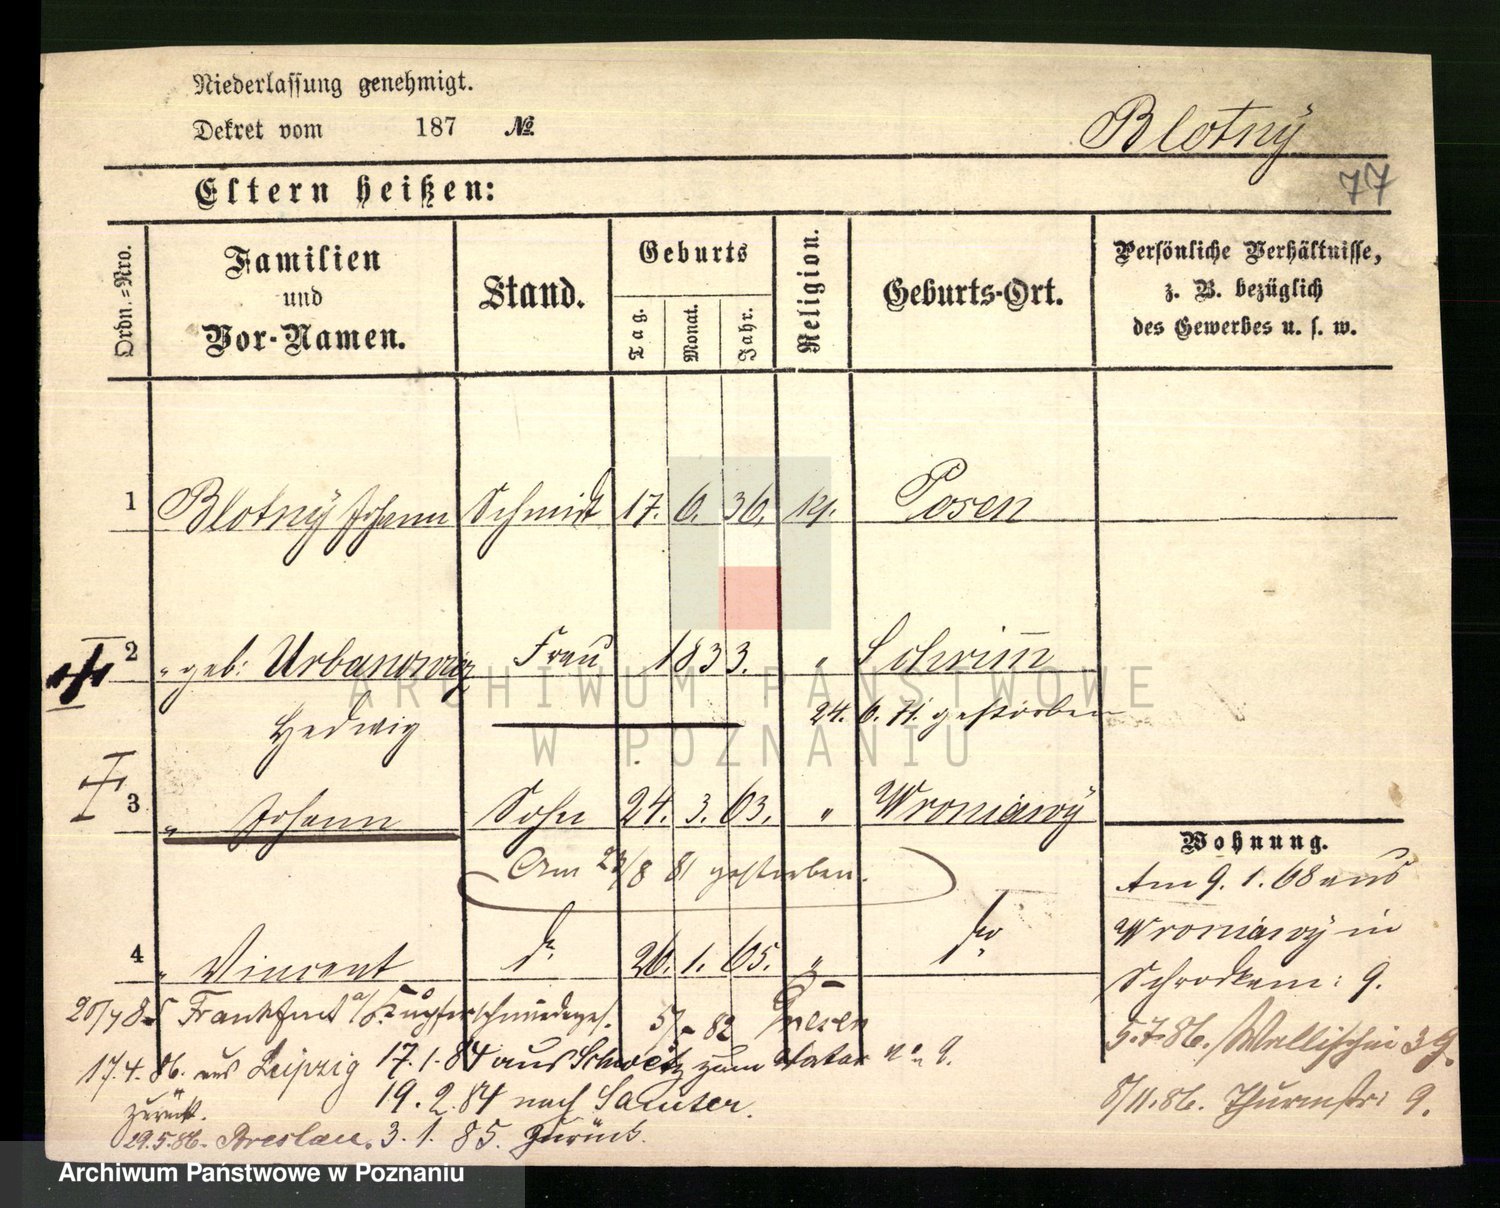 Niederlassung genehmigt.
Dekret vom 187 №
Blotnÿ
77
Eltern heißen:
Ordn.=Nro.
Familien und Vor-Namen.
Stand.
Geburts
Tag. Monat. Jahr.
Religion.
Geburts-Ort.
Persönliche Verhältnisse, z. B. bezüglich des Gewerbes u. s. w.
1 Blotnÿ Johann Schmidt 17. 6. 36. Posen
2 " geb: Urbanowicz Frau 1833. " Schrim̄
Hedwig 24. 6. 71. gestorben
3 " Johann Sohn 24. 3. 63. " Wroniawÿ
Am 23/8 81 gestorben.
4 " Vincent do 26. 1. 65. " do
Wohnung.
Am 9. 1. 68 aus
Wroniawÿ in
Schrodkam: 9.
5.7.86. Wallischei 39.
8/11.86. Thurmstr: 9.
20/7 85 Frankfurt a/O Kupferschmiedeges. 5/- 82 Gnesen
17.4.86. aus Leipzig 17.1.84 aus Schwetz zum Vater No 9.
zurück. 19.2.84 nach Samter.
29.5.86. Breslau. 3. 1. 85. zurück.
ARCHIWUM PAŃSTWOWE
W POZNANIU
Archiwum Państwowe w Poznaniu